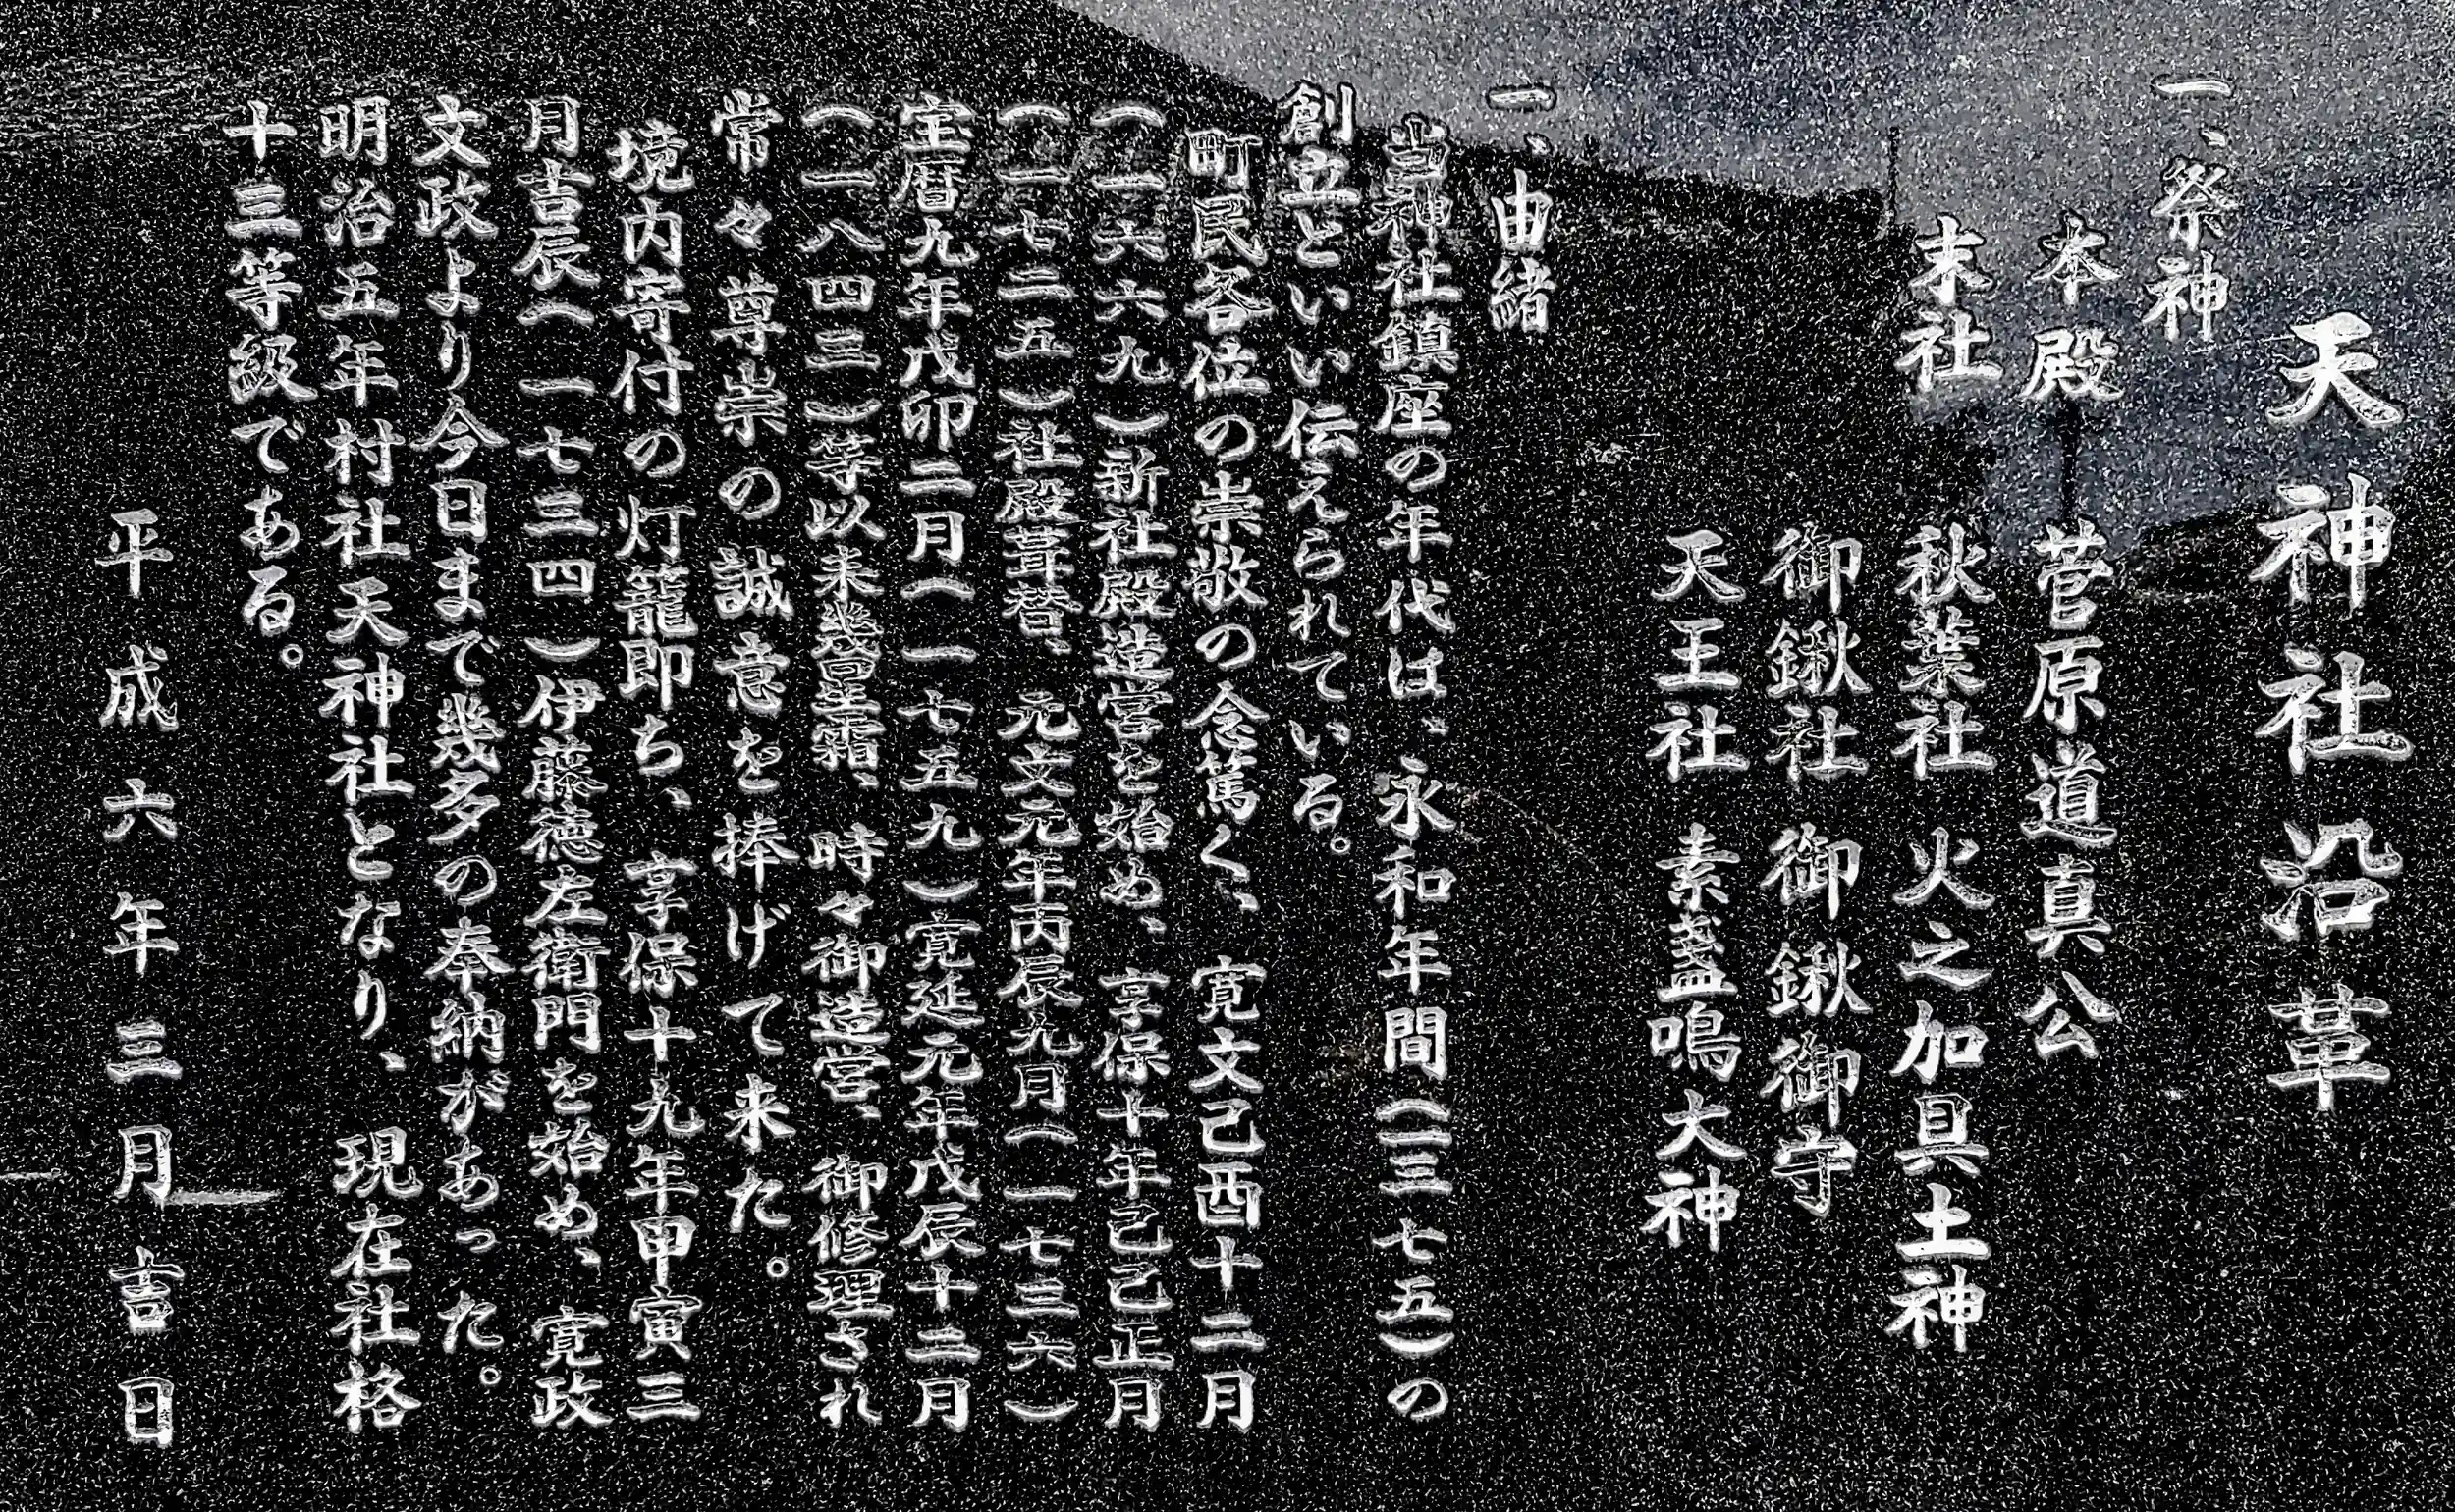 天神社沿革
一、祭神
本殿 菅原道真公
末社 秋葉社 火之加具土神
御鍬社 御鍬御守
天王社 素盞鳴大神
一、由緒
当神社鎮座の年代は、永和年間(一三七五)の
創立といい伝えられている。
町民各位の崇敬の念篤く、寛文己酉十二月
(一六六九)新社殿造営を始め、享保十年己己正月
(一七二五)社殿葺替、元文元年丙辰九月(一七三六)
宝暦九年戊卯二月(一七五九)寛延元年戊辰十二月
(一八四三)等以来幾百星霜、時々御造営、御修理され
常々尊崇の誠意を捧げて来た。
境内寄付の灯籠即ち、享保十九年甲寅三
月吉辰(一七三四)伊藤徳左衛門を始め、寛政
文政より今日まで幾多の奉納があった。
明治五年村社天神社となり、現在社格
十三等級である。
平成六年三月吉日